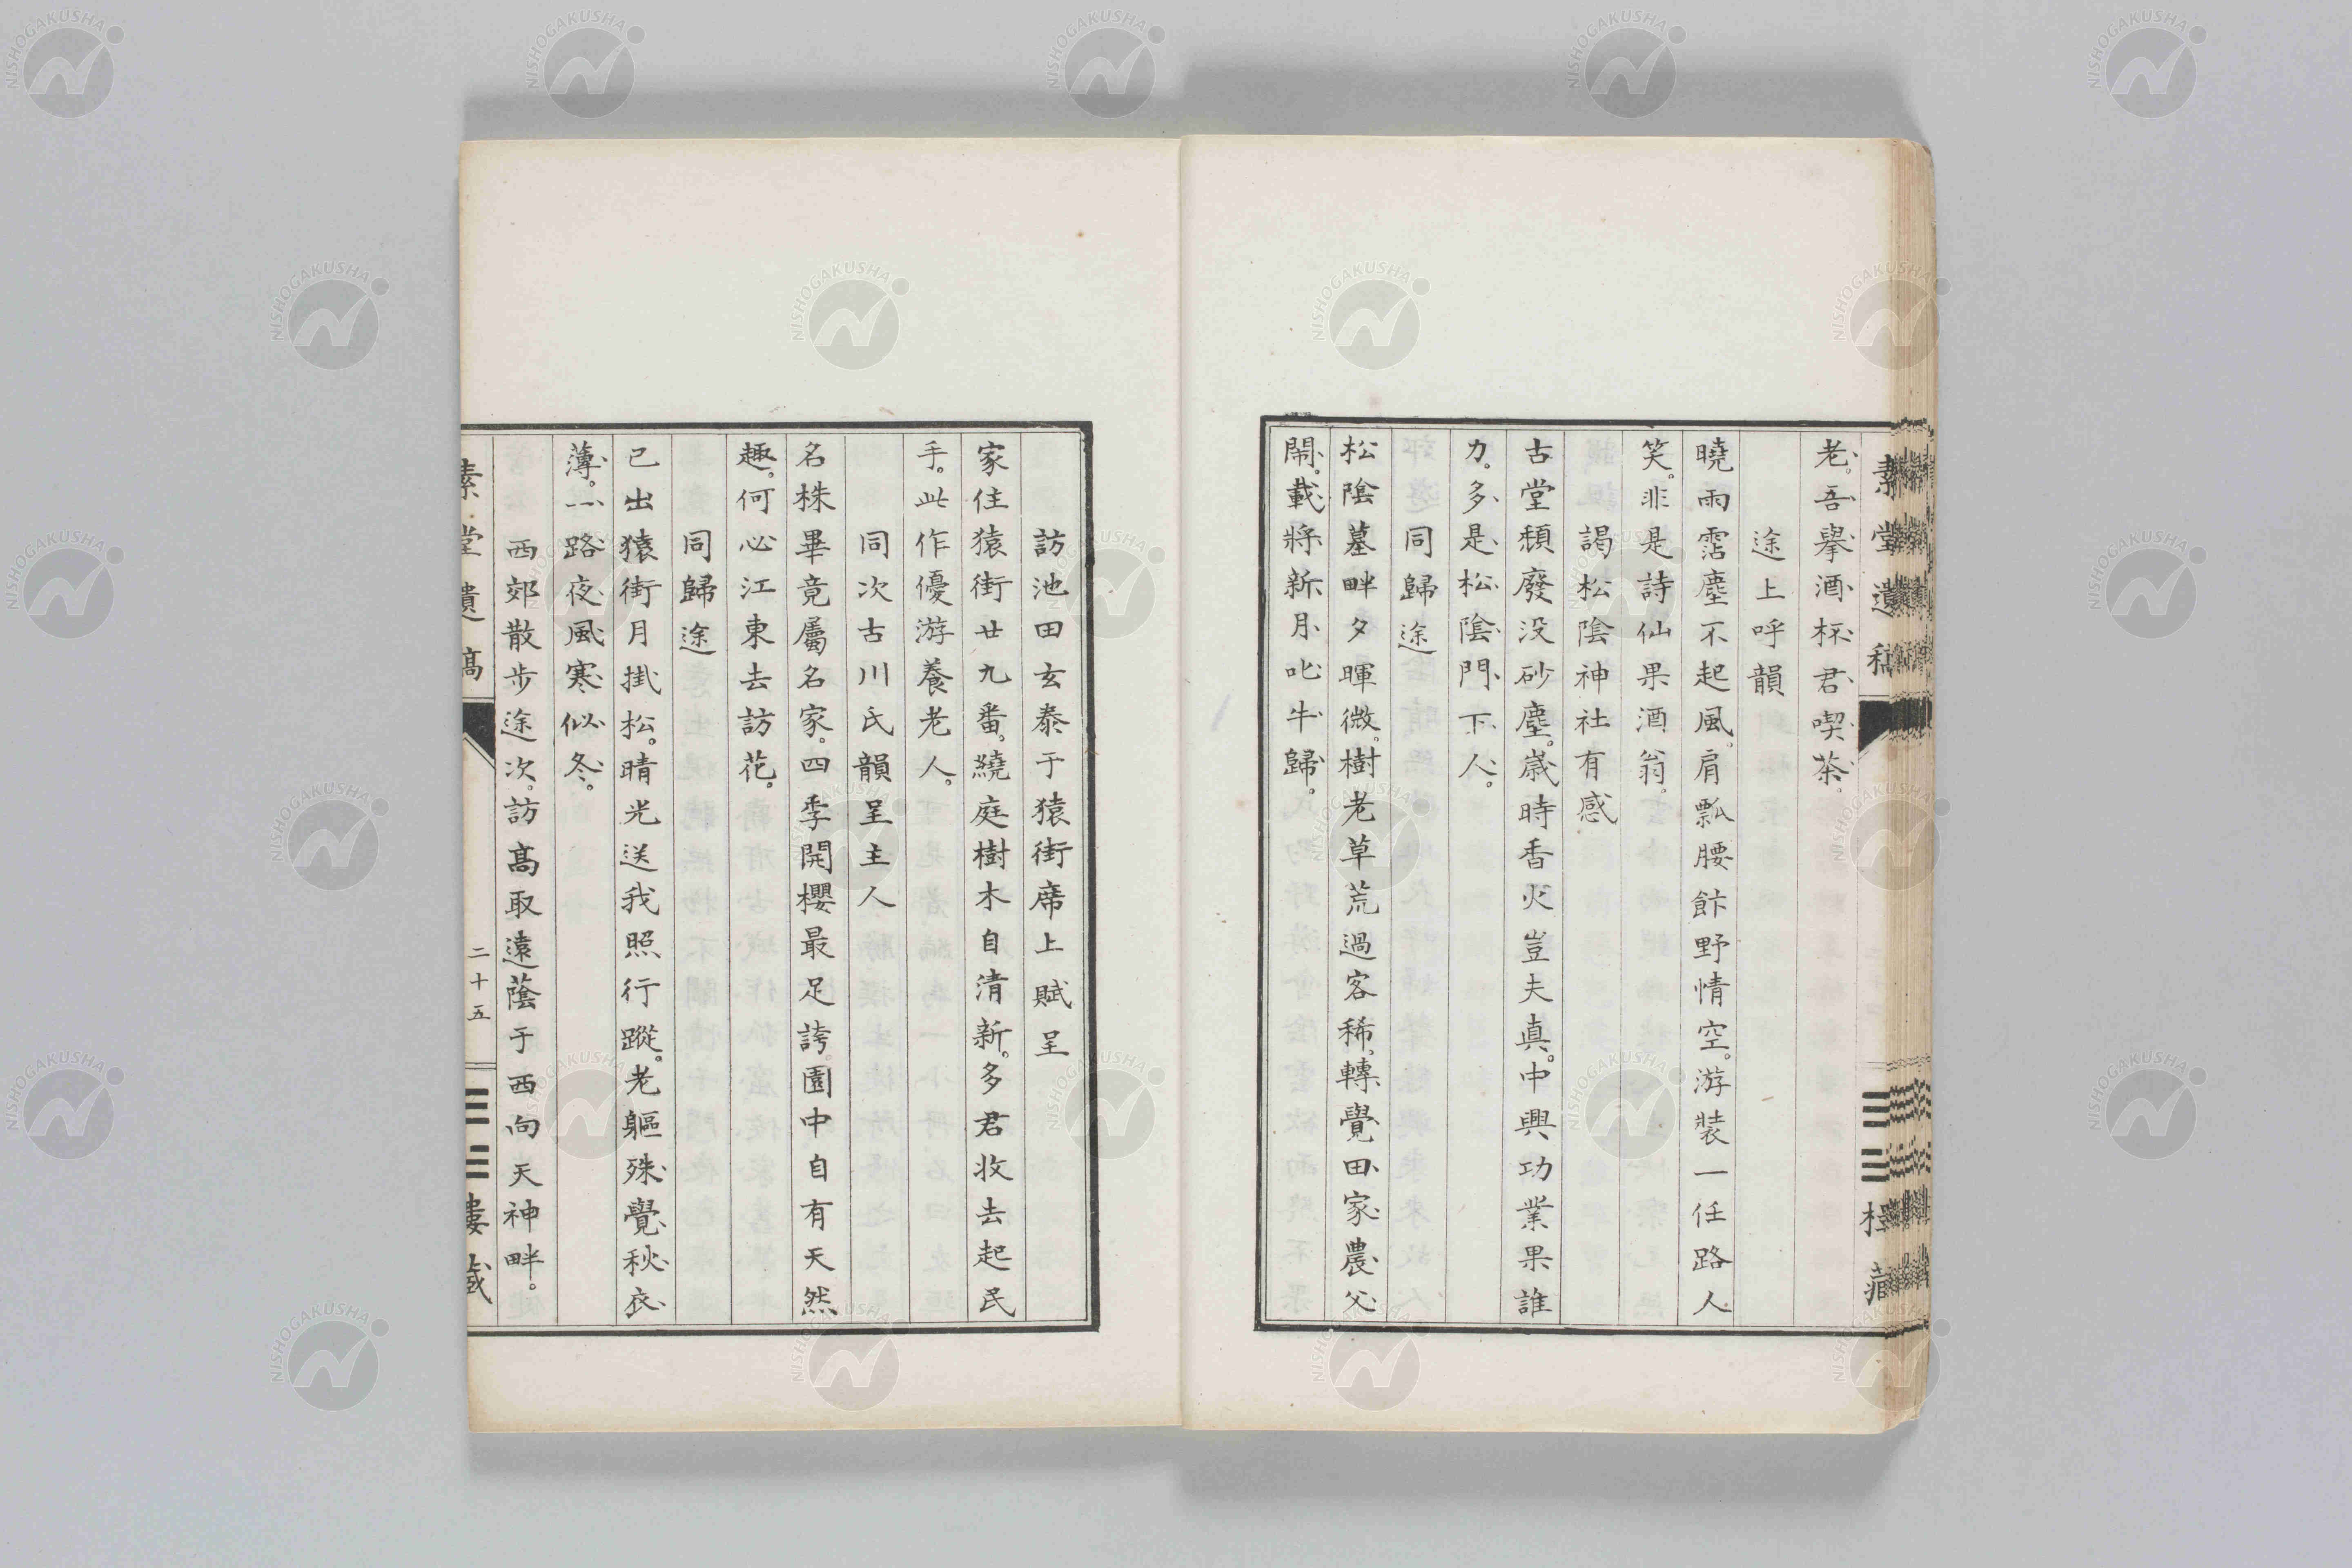 素堂遺稿
老。吾擧酒杯君喫茶。
途上呼韻
曉雨霑塵不起風。肩瓢腰餅野情空。游裝一任路人
笑。非是詩仙果酒翁。
謁松陰神社有感
古堂頽廢没砂塵。歳時香火豈夫真。中興功業果誰
力。多是松陰門下人。
同歸途
松陰墓畔夕暉微。樹老草荒過客稀。轉覺田家農父
閙。載將新月叱牛歸。
訪池田玄泰于猿街席上賦呈
家住猿街廿九番。繞庭樹木自清新。多君收去起民
手。此作優游養老人。
同次古川氏韻呈主人
名株畢竟屬名家。四季開櫻最足誇。園中自有天然
趣。何心江東去訪花。
同歸途
已出猿街月掛松。晴光送我照行蹤。老軀殊覺秋衣
薄。一路夜風寒似冬。
西郊散步途次。訪髙取遠蔭于西向天神畔。
素堂遺稿
二十五
NISHOGAKUSHA